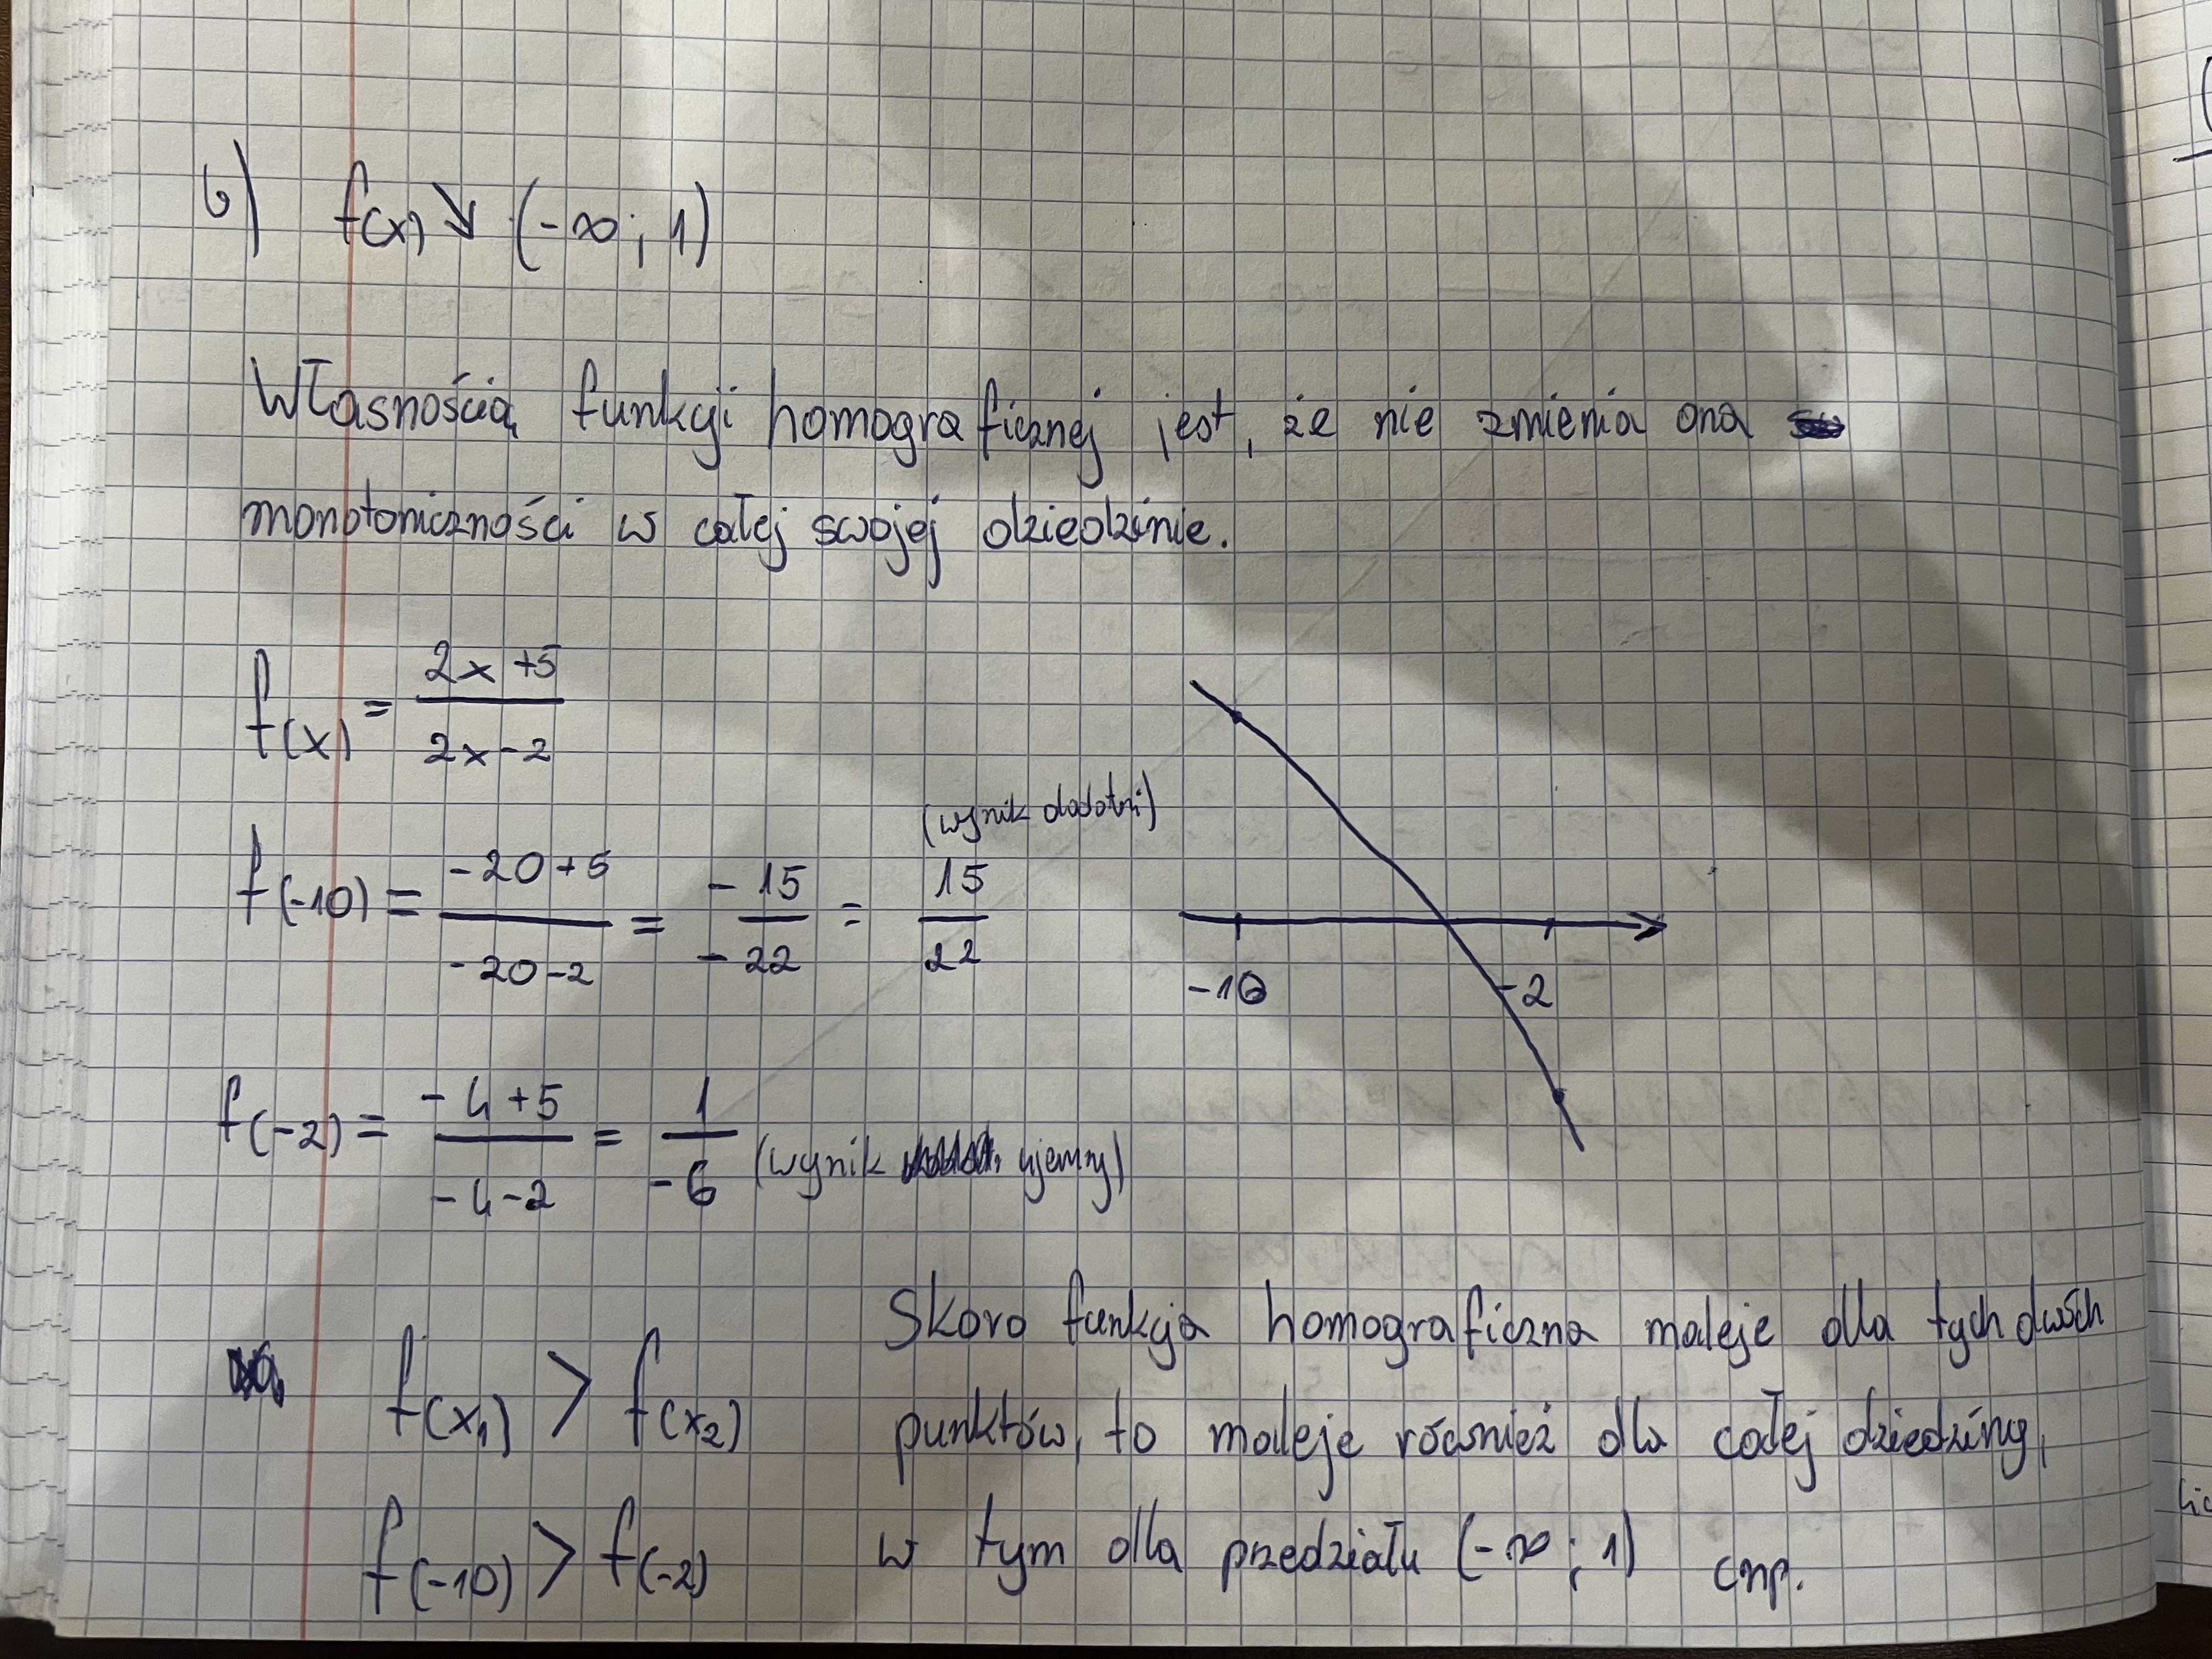 b) f(x) ↘ (-∞; 1)
Własnością funkcji homograficznej jest, że nie zmienia ona
monotoniczności w całej swojej dziedzinie.
f(x) = \frac{2x+5}{2x-2}
(wynik dodatni)
f(-10) = \frac{-20+5}{-20-2} = \frac{-15}{-22} = \frac{15}{22}
-10 -2
f(-2) = \frac{-4+5}{-4-2} = \frac{1}{-6} (wynik ujemny)
Skoro funkcja homograficzna maleje dla tych dwóch
f(x₁) > f(x₂)
punktów, to maleje również dla całej dziedziny,
f(-10) > f(-2)
w tym dla przedziału (-∞; 1) cnp.